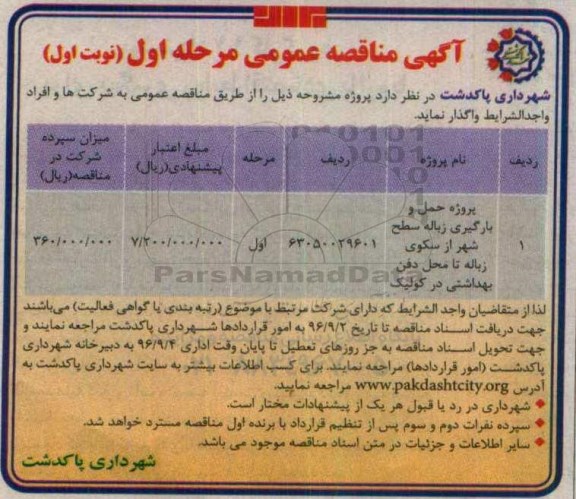 آگهی مناقصه عمومی مرحله اول (نوبت اول)
شهرداری پاکدشت در نظر دارد پروژه مشروحه ذیل را از طریق مناقصه عمومی به شرکت ها و افراد
واجدالشرایط واگذار نماید.
ردیف	نام پروژه	ردیف	مرحله	مبلغ اعتبار پیشنهادی(ریال)	میزان سپرده شرکت در مناقصه(ریال)
۱	پروژه حمل و بارگیری زباله سطح شهر از سکوی زباله تا محل دفن بهداشتی در کولیک	۶۳۰۵۰۰۲۹۶۰۱	اول	۷/۲۰۰/۰۰۰/۰۰۰	۳۶۰/۰۰۰/۰۰۰
ParsNamadData
لذا از متقاضیان واجد الشرایط که دارای شرکت مرتبط با موضوع (رتبه بندی یا گواهی فعالیت) می‌باشند
جهت دریافت اسناد مناقصه تا تاریخ ۹۶/۹/۲ به امور قراردادها شهرداری پاکدشت مراجعه نمایند و
جهت تحویل اسناد مناقصه به جز روزهای تعطیل تا پایان وقت اداری ۹۶/۹/۴ به دبیرخانه شهرداری
پاکدشت (امور قراردادها) مراجعه نمایند برای کسب اطلاعات بیشتر به سایت شهرداری پاکدشت به
آدرس www.pakdashtcity.org مراجعه نمایید.
♦ شهرداری در رد یا قبول هر یک از پیشنهادات مختار است.
♦ سپرده نفرات دوم و سوم پس از تنظیم قرارداد با برنده اول مناقصه مسترد خواهد شد.
♦ سایر اطلاعات و جزئیات در متن اسناد مناقصه موجود می باشد.
شهرداری پاکدشت